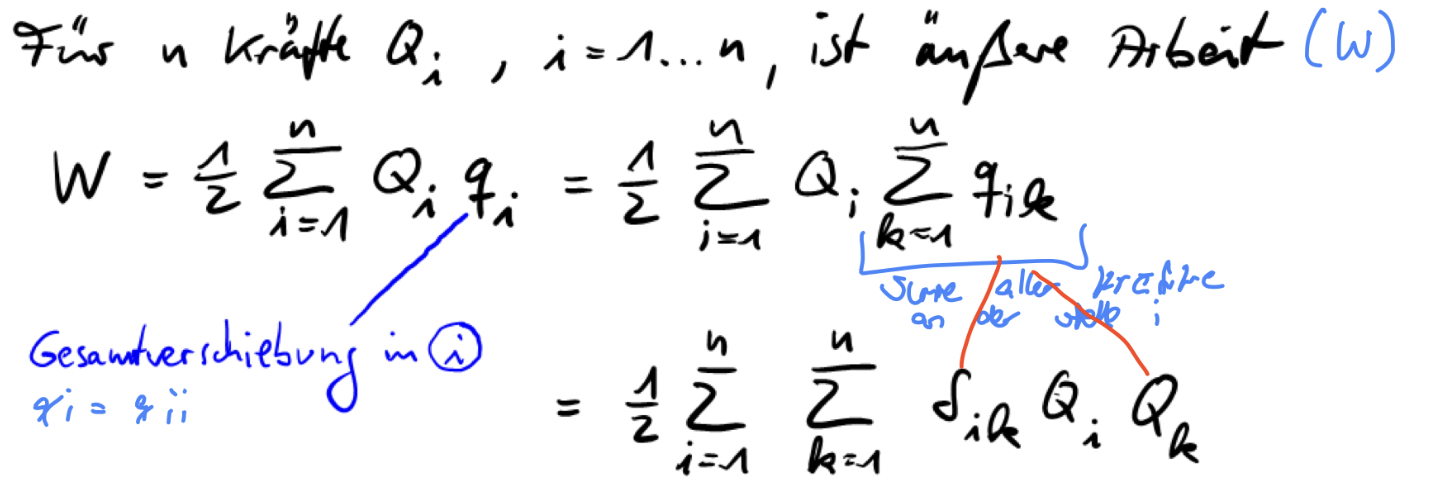 Für n Kräfte Q_i , i = 1...n, ist äußere Arbeit (W)
W = 1/2 ∑_{i=1}^{n} Q_i q_i = 1/2 ∑_{i=1}^{n} Q_i ∑_{k=1}^{n} q_{ik}
Summe aller Kräfte
an der stelle i
Gesamtverschiebung in i
q i = q ii
= 1/2 ∑_{i=1}^{n} ∑_{k=1}^{n} δ_{ik} Q_i Q_k